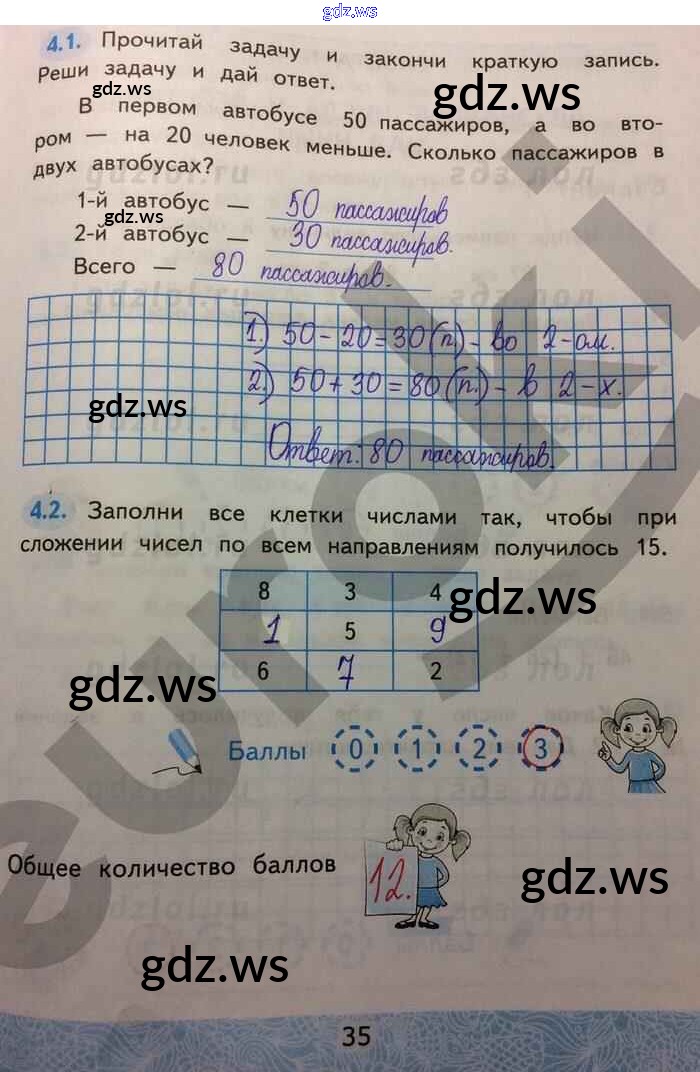 gdz.ws
4.1. Прочитай задачу и закончи краткую запись.
Реши задачу и дай ответ.
gdz.ws
gdz.ws
В первом автобусе 50 пассажиров, а во вто-
ром — на 20 человек меньше. Сколько пассажиров в
двух автобусах?
1-й автобус — 50 пассажиров
gdz.ws
2-й автобус — 30 пассажиров.
Всего — 80 пассажиров.
1.) 50-20=30(п.)- во 2-ом.
2.) 50+30=80(п.)- в 2-х.
gdz.ws
Ответ: 80 пассажиров.
4.2. Заполни все клетки числами так, чтобы при
сложении чисел по всем направлениям получилось 15.
8 3 4
gdz.ws
1 5 9
6 7 2
gdz.ws
Баллы 0 1 2 3
Общее количество баллов 12.
gdz.ws
gdz.ws
35
euroki